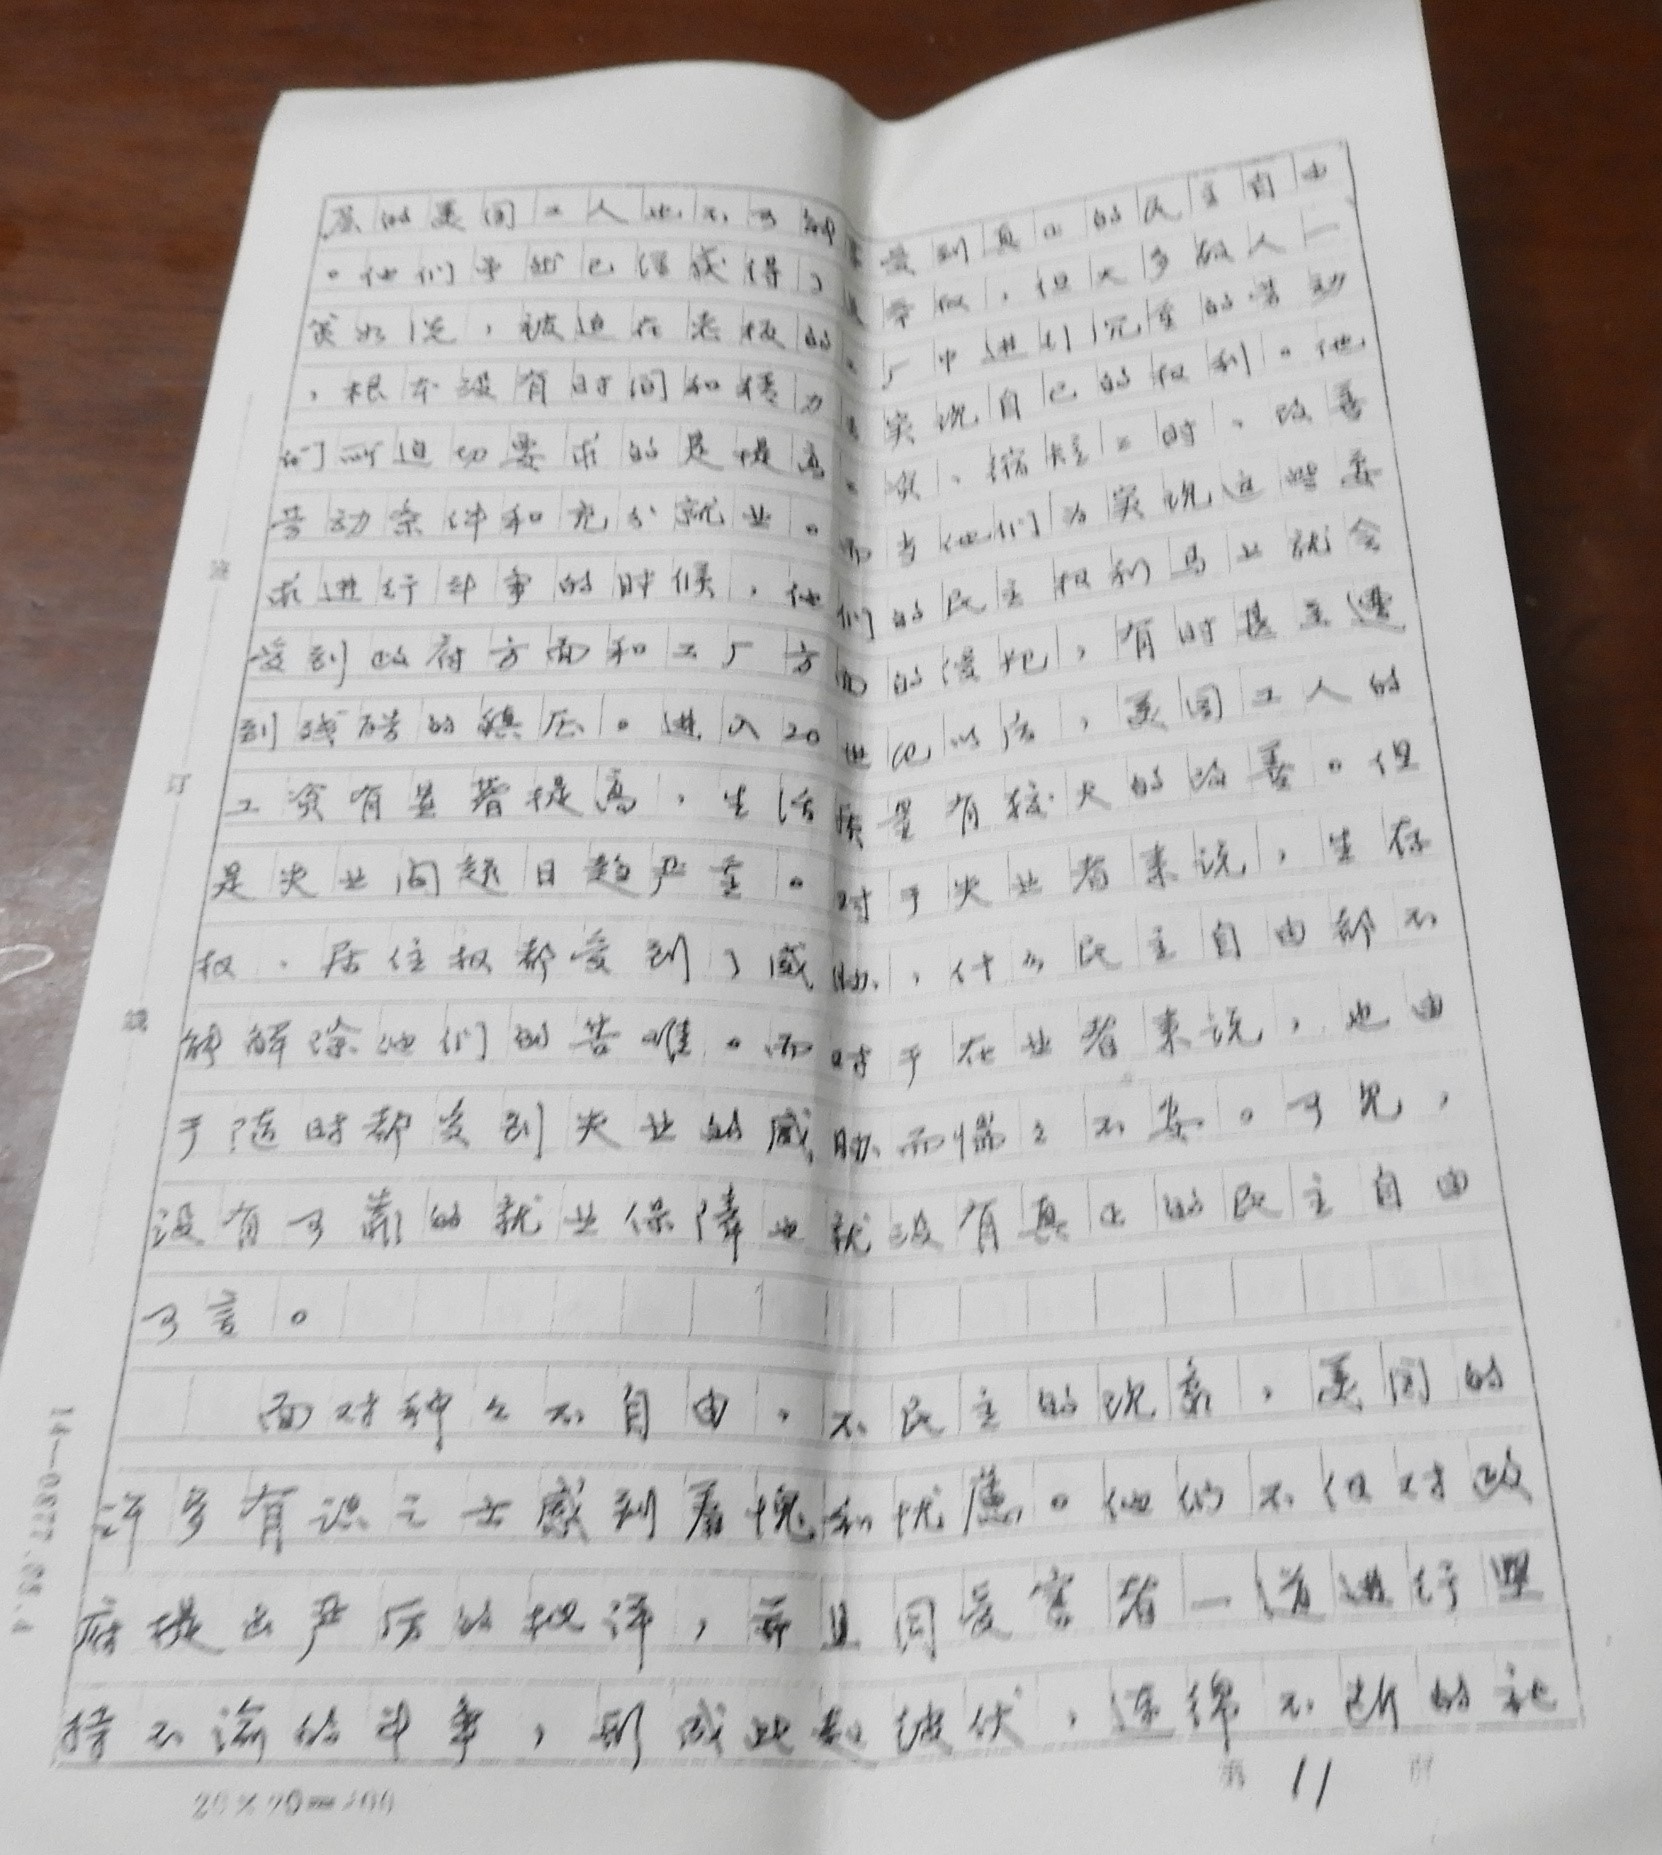 层的美国工人也不可能享受到真正的民主自由
。他们虽然已经获得了选举权,但大多数人一
贫如洗,被迫在老板的工厂中进行沉重的劳动
,根本没有时间和精力去实现自己的权利。他
们所迫切要求的是提高工资、缩短工时、改善
劳动条件和充分就业。而当他们为实现这些要
求进行斗争的时候,他们的民主权利马上就会
受到政府方面和工厂方面的侵犯,有时甚至遭
到残酷的镇压。进入20世纪以后,美国工人的
工资有显著提高,生活质量有较大的改善。但
是失业问题日趋严重。对于失业者来说,生存
权、居住权都受到了威胁,什么民主自由都不
能解除他们的苦难。而对于在业者来说,也由
于随时都受到失业的威胁而惴々不安。可见,
没有可靠的就业保障也就没有真正的民主自由
可言。
面对种々不自由,不民主的现象,美国的
许多有识之士感到羞愧和忧虑。他们不仅对政
府提出严厉的批评,并且同受害者一道进行坚
持不渝的斗争,形成此起彼伏,连绵不断的社
20×20=400
第 11 页
装
订
线
14—0877.03.4